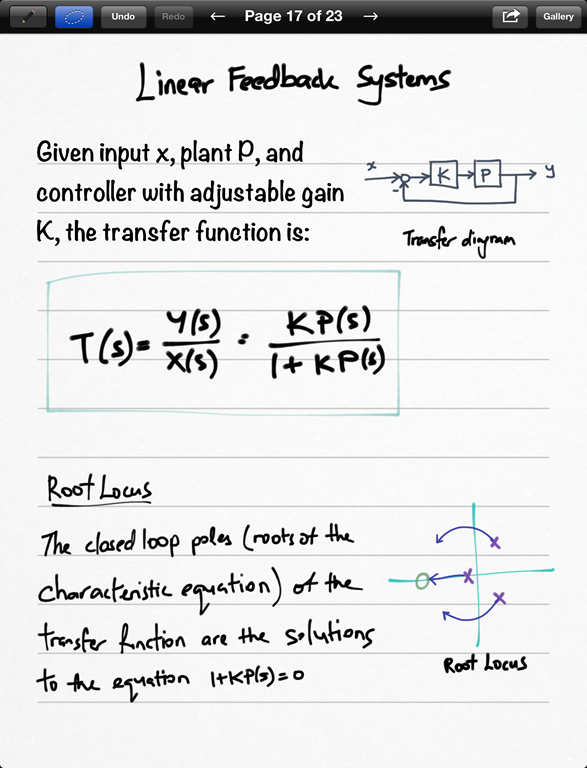 Undo
Redo
← Page 17 of 23 →
Gallery
Linear Feedback Systems
Given input x, plant P, and
controller with adjustable gain
K, the transfer function is:
x
K
P
y
-
Transfer digram
T(s) = Y(s)/X(s) = KP(s)/1+KP(s)
Root Locus
The closed loop poles (roots of the
characteristic equation) of the
transfer function are the solutions
to the equation 1+KP(s)=0
Root Locus